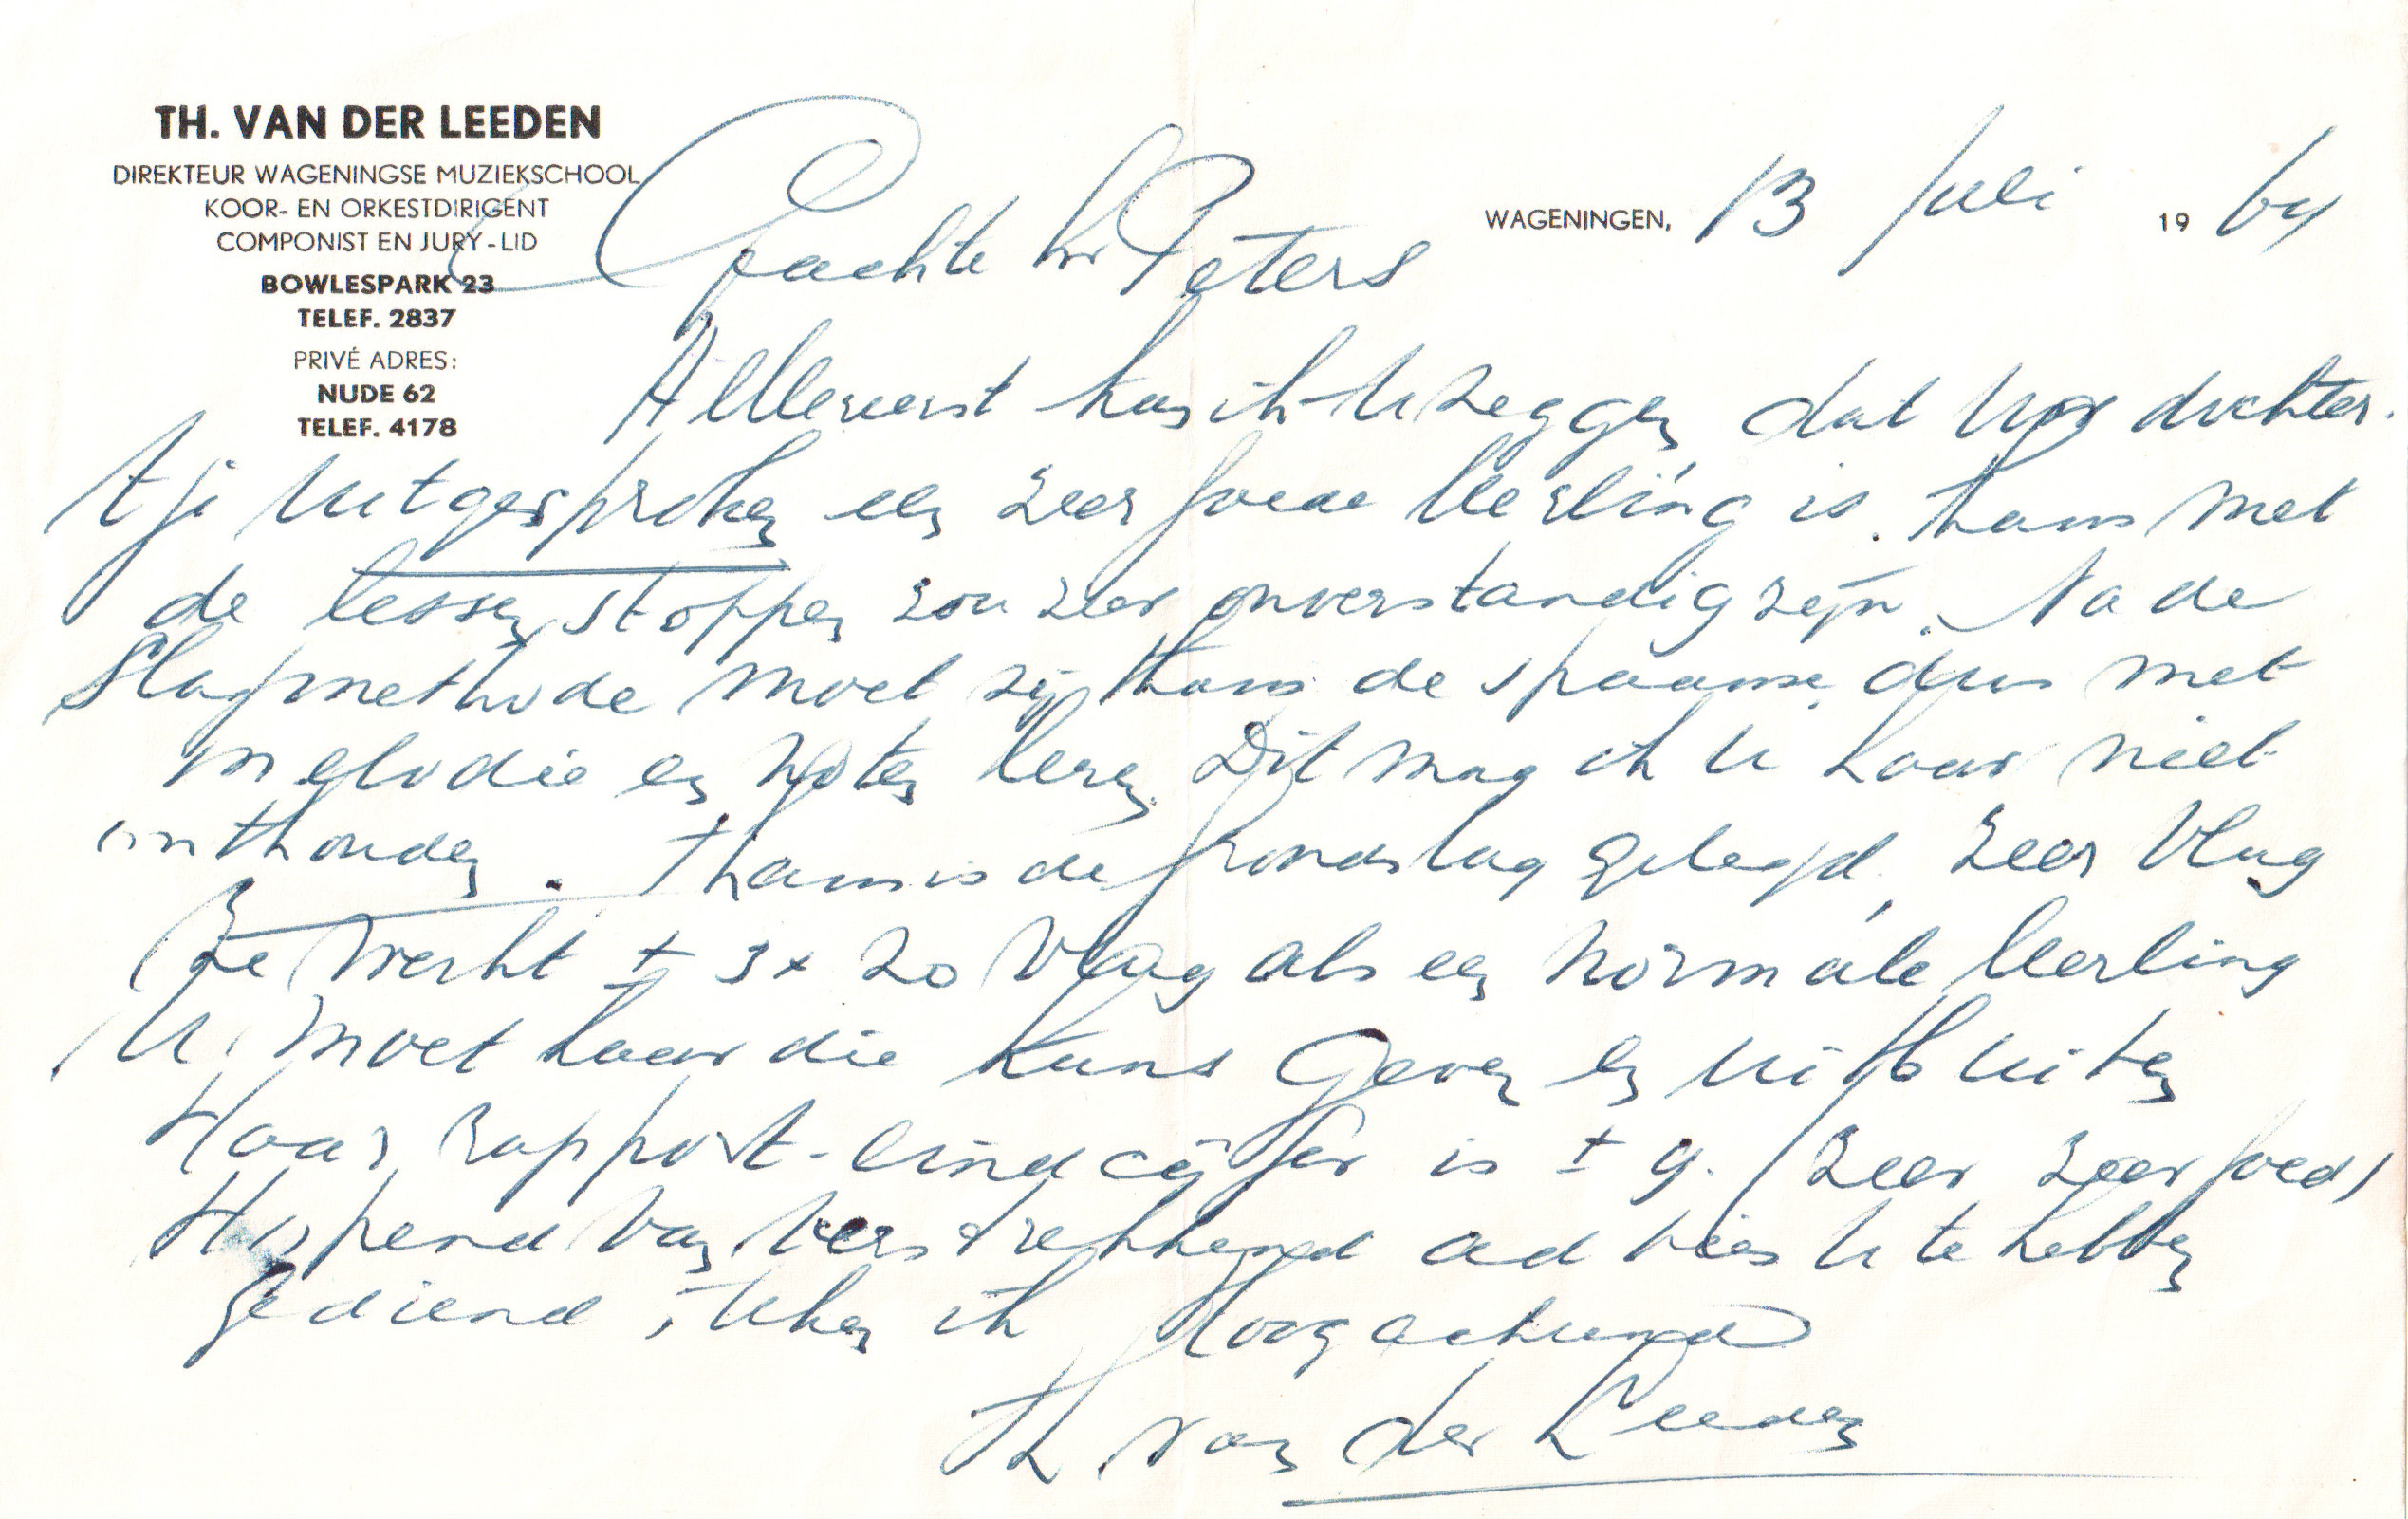 TH. VAN DER LEEDEN
DIREKTEUR WAGENINGSE MUZIEKSCHOOL
KOOR- EN ORKESTDIRIGENT
COMPONIST EN JURY-LID
BOWLESPARK 23
TELEF. 2837
PRIVÉ ADRES:
NUDE 62
TELEF. 4178
WAGENINGEN, 13 Juli 1964
Geachte hr Peters
Allereerst kan ik U zeggen dat Uw dochter-
tje uitgesproken een zeer goede leerling is. Thans met
de lessen stoppen zou zeer onverstandig zijn. Na de
slagmethode moet zij thans de spaanse, dus met
melodie en noten leren. Dit mag ik U haar niet
onthouden. Thans is de grondslag gelegd, zeer vlug
(Ze werkt ± 3x zo vlug als een normale leerling
U moet haar die kans geven en uitbuiten
Haar rapport-eindcijfer is ± 9. (zeer zeer goed)
Hopend van verstrekkend advies U te hebben
gediend, teken ik Hoogachtend
Th van der Leeden